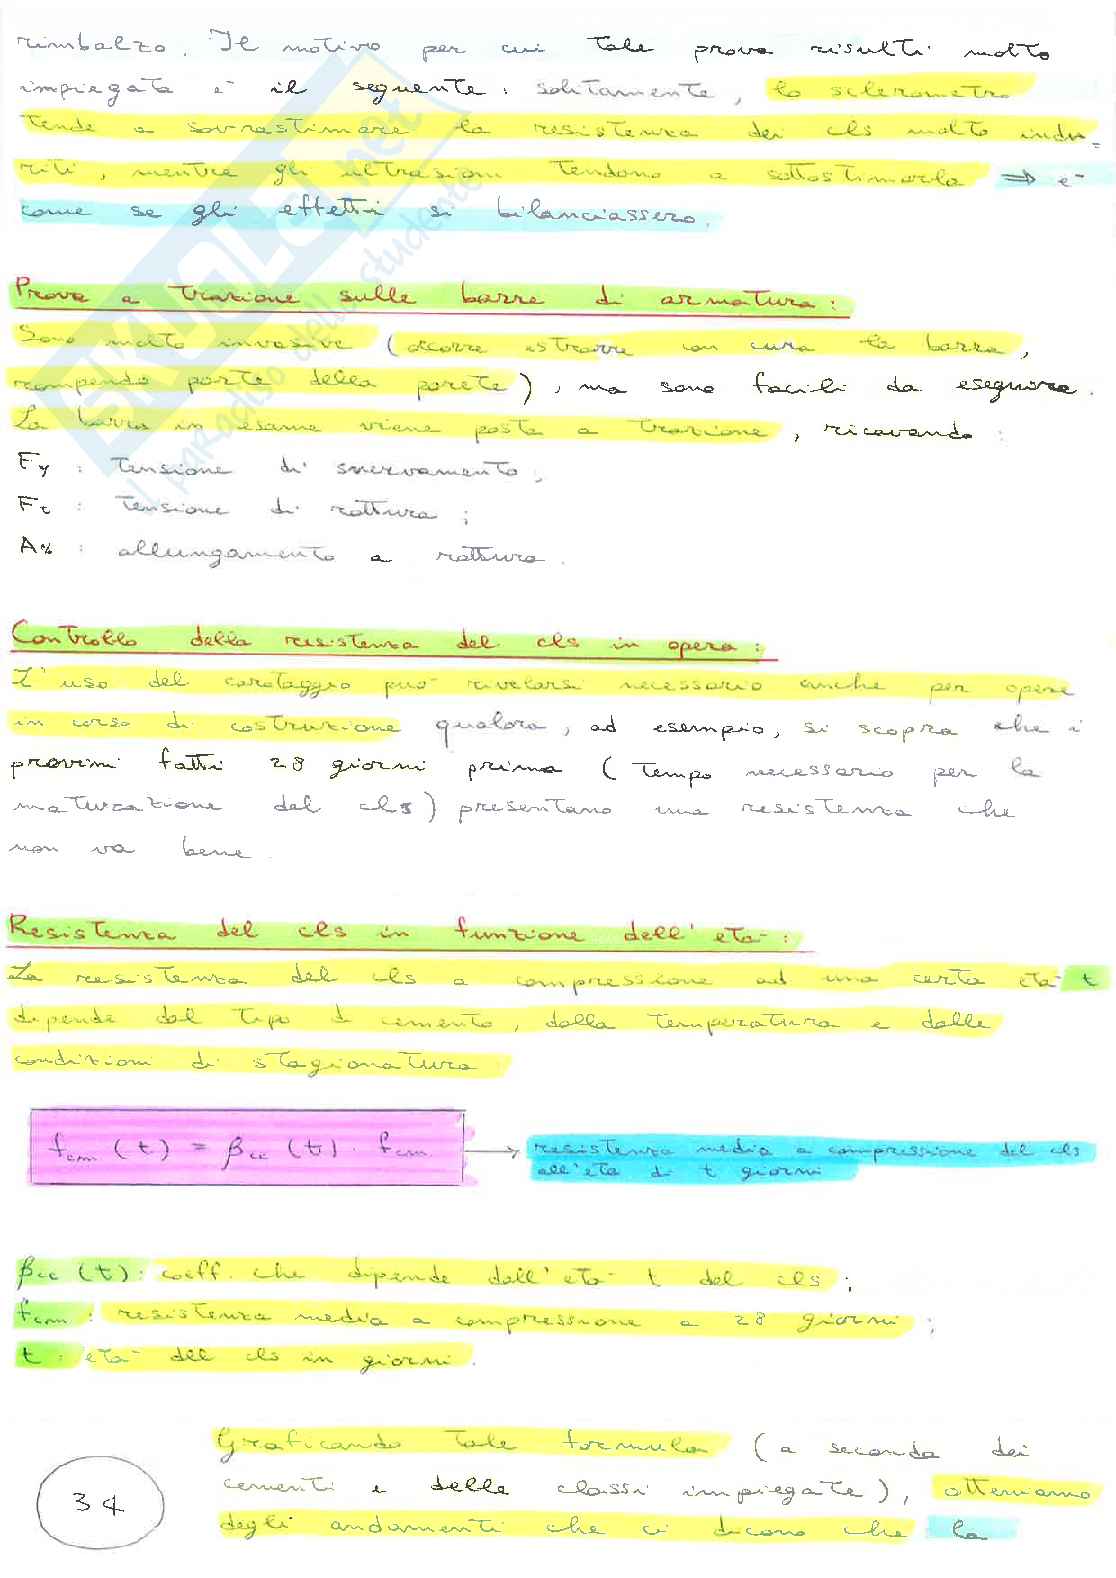 rimbalzo. Il motivo per cui tale prova risulti molto
impiegata è il seguente: solitamente, lo sclerometro
tende a sovrastimare la resistenza dei cls molto indu-
riti, mentre gli ultrasuoni tendono a sottostimarla ⇒ è
come se gli effetti si bilanciassero.
Prova a trazione sulle barre di armatura:
Sono molto invasive (occorre estrarre con cura la barra,
rompendo parte della parete), ma sono facili da eseguire.
La barra in esame viene posta a trazione, ricavando:
Fy: tensione di snervamento;
Ft: tensione di rottura;
A%: allungamento a rottura.
Controllo della resistenza del cls in opera:
L'uso del carotaggio può rivelarsi necessario anche per opere
in corso di costruzione qualora, ad esempio, si scopra che i
provini fatti 28 giorni prima (tempo necessario per la
maturazione del cls) presentano una resistenza che
non va bene.
Resistenza del cls in funzione dell'età:
La resistenza del cls a compressione ad una certa età t
dipende dal tipo di cemento, dalla temperatura e dalle
condizioni di stagionatura:
fcm (t) = βcc (t) · fcm → resistenza media a compressione del cls
all'età di t giorni
βcc (t): coeff. che dipende dall'età t del cls;
fcm: resistenza media a compressione a 28 giorni;
t: età del cls in giorni.
Graficando tale formula (a seconda dei
cementi e delle classi impiegate), otteniamo
degli andamenti che ci dicono che la
34
SKUOLA.net
il paradiso dello studente